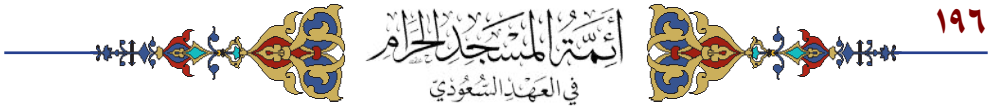 ١٩٦
أَئِمَّةُ المَسْجِدِ الحَرَامِ
في العَهْدِ السُّعُودِيّ